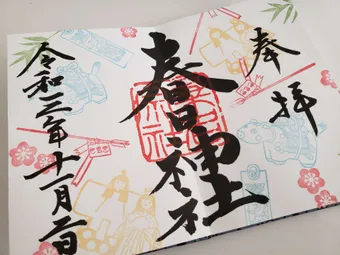 奉拝
春日神社
令和二年十一月二日